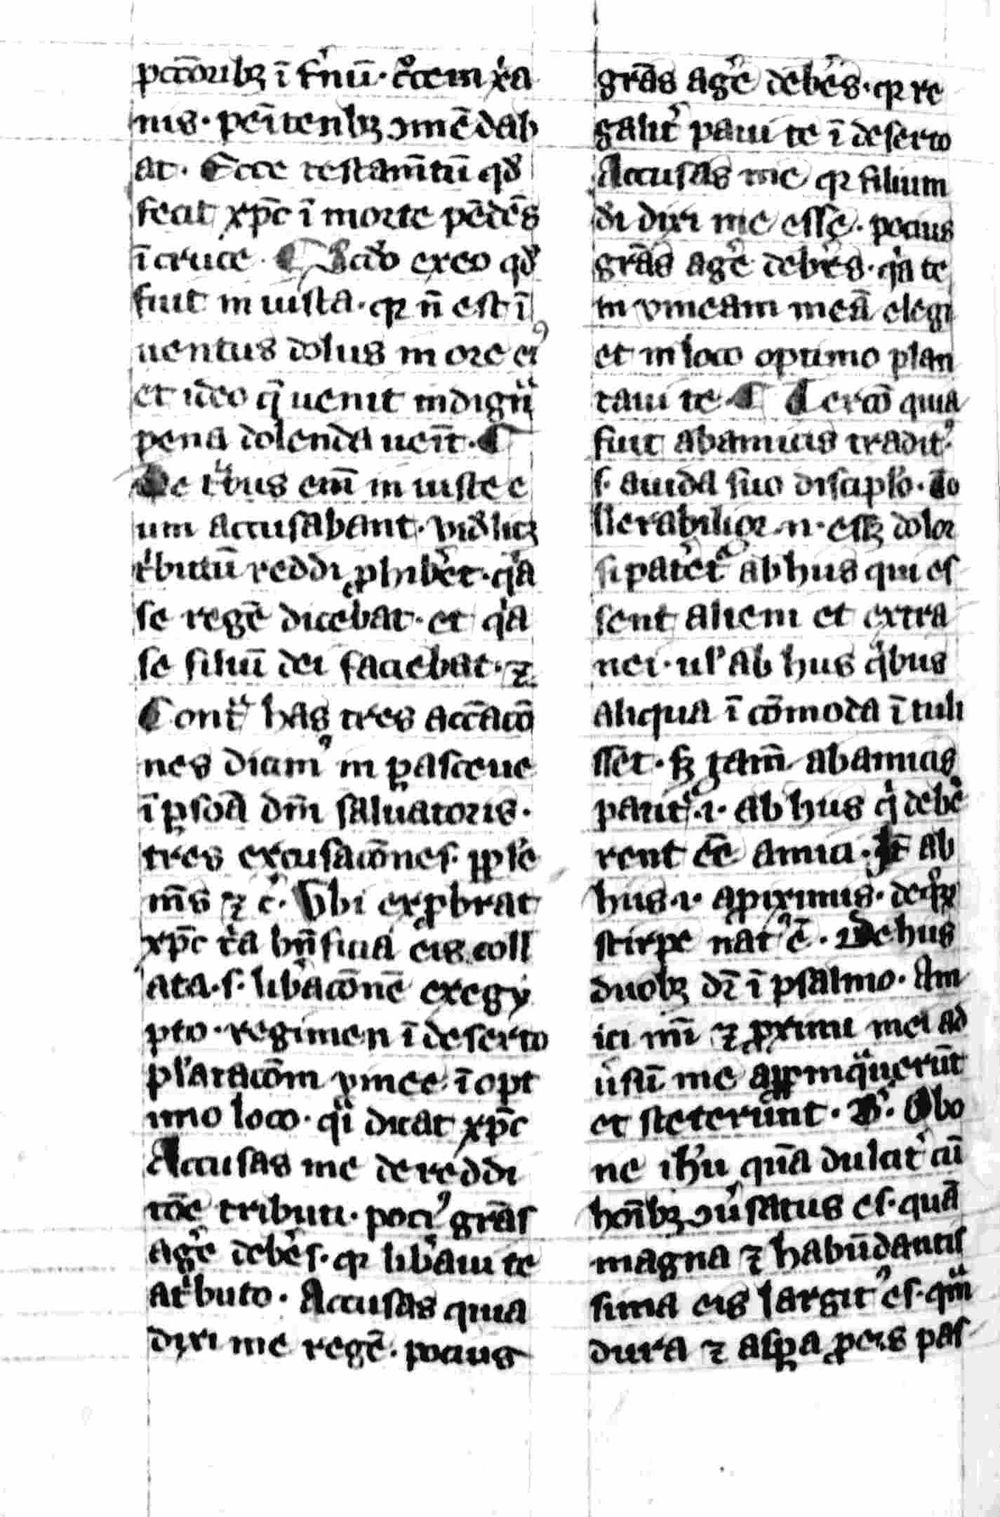 pcc̄oribꝫ ī f̓nū· c̓ocem xp̄ia
nis· penitenbꝫ ꝯmēdab
at· Ecce testam̄tū qd̓
fecit xp̄c ī morte pēdēs
ī cruce· ¶ Scd̓o exeo qd̓
fuit in iusta· qꝛ n̄ est ī
uentus dolus in ore eiꝰ
et ideo q̄ uenit indignͣ
pena dolenda ueīt· ¶
De tͥbus em̄ in iuste e
um accusabant· vid̓licꝫ
tͥbutū reddi ꝓhib̓et· qͥa
se regē dicebat· et qͥa
se filiū dei faciebat· ⁊
Contͣ has tres accācō
nes dicamꝰ in pasceue
ī ꝑsoā dn̄i saluatoris·
tres excusacōnes· ppl̓e
m̄s ⁊ c̓· Vbi exꝓbrat
xp̄c tͥa bn̄ficia eis coll
ata· s· lib̓acōnē exegy
pto· regimen ī deserto
pl̓atacōm vinee· ī opt
imo loco· qͥ dicat xp̄c
Accusas me de reddi
tōe tributi· pociꝰ grās
ag̓e deb̓es· qꝛ lib̓aui te
atͥbuto· Accusas quia
dixi me regē· pocius
grās ag̓e deb̓es· qꝛ re
galit̓ paui te ī deserto
Accusas me qꝛ filium
di dixi me esse· pocius
grās ag̓e deb̓es· qͥa te
in vineam meā elegi
et in loco optimo plan
taui te· ¶ Tercō quia
fuit abamicis traditꝰ
s· aiuda suo discipl̓o· To
llerabilior· n· essꝫ dolor
si patet̓ ab hiis qui es
sent alieni et extra
nei· ul̓ ab hiis qͥbus
aliqua īcōmoda ītuli
sset· sꝫ iam̄ abamicis
patit̓· i· ab hiis qͥ debē
rent cē̄ amici· It̄ ab
hiis· i· aꝓximis· de qͦꝝ
stirpe natꝰ ē· De hiis
duobꝫ dr̄ ī psalmo· Am
ici mī ⁊ ꝓximi mei ad
ūsū me appīnqͣuerūt
et steterunt· B̓· O bo
ne ih̓u qn̄a dulcit̓ cū
hōibꝫ ꝯu̓satus es· quā
magna ⁊ habūdantis
sima eis largitꝰ es· qͣm
dura ⁊ aspa ꝓ eis pas